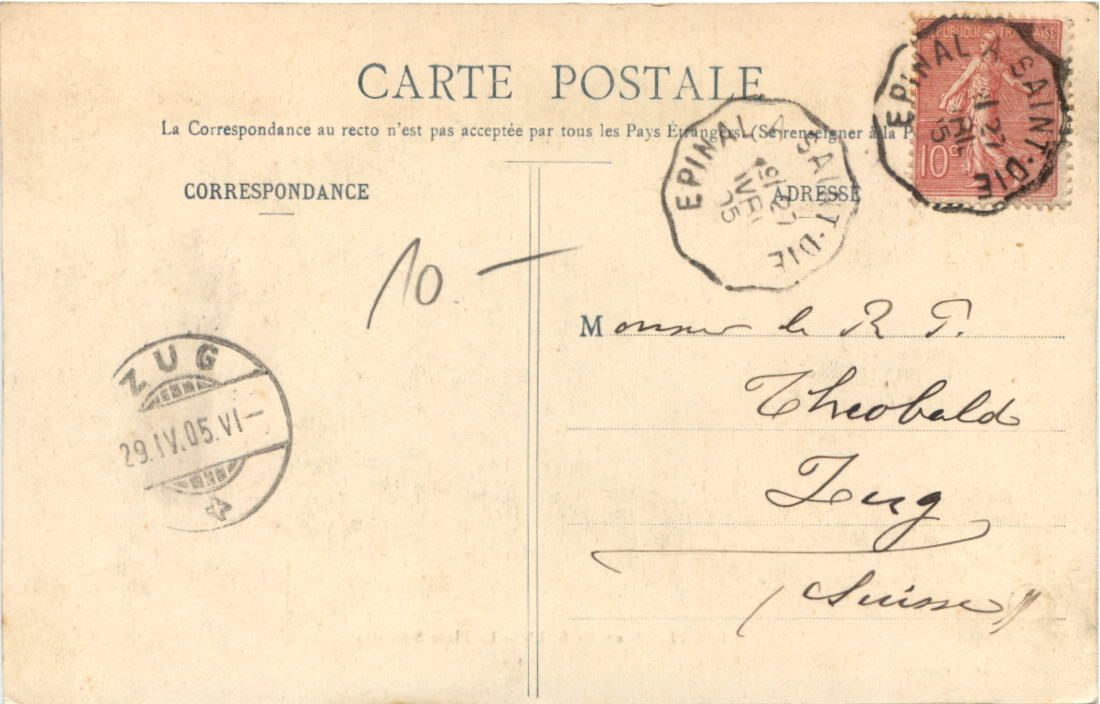 CARTE POSTALE
La Correspondance au recto n'est pas acceptée par tous les Pays Étrangers. (Se renseigner à la P
CORRESPONDANCE
ADRESSE
REPUBLIQUE FRANÇAISE
10
EPINAL A SAINT-DIE
27
EPINAL A SAINT-DIE
27
05
10.-
ZUG
29.IV.05.VI-
Monsieur le R P.
Theobald
Zug
(Suisse)